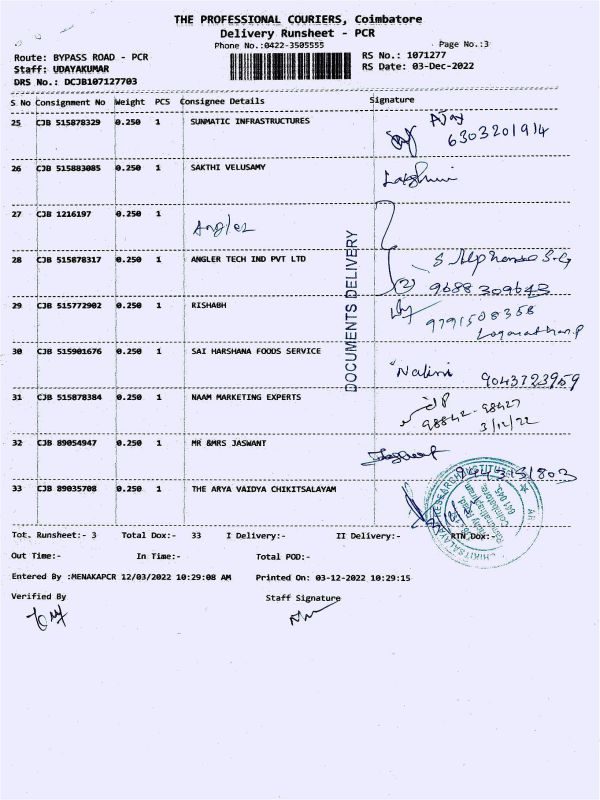 THE PROFESSIONAL COURIERS, Coimbatore
Delivery Runsheet - PCR
Phone No.:0422-3505555
Page No.:3
Route: BYPASS ROAD - PCR
RS No.: 1071277
Staff: UDAYAKUMAR
RS Date: 03-Dec-2022
DRS No.: DCJB107127703
S No Consignment No Weight PCS Consignee Details Signature
25 CJB 515878329 0.250 1 SUNMATIC INFRASTRUCTURES Ajay
6303201914
26 CJB 515883085 0.250 1 SAKTHI VELUSAMY Lakshmi
27 CJB 1216197 0.250 1 Angler
28 CJB 515878317 0.250 1 ANGLER TECH IND PVT LTD S Alphonse S.G
(2) 9688309643
29 CJB 515772902 0.250 1 RISHABH
9791508358
Loganathan.P
30 CJB 515901676 0.250 1 SAI HARSHANA FOODS SERVICE
Nalini 9043723959
31 CJB 515878384 0.250 1 NAAM MARKETING EXPERTS
98842-98427
3/12/22
32 CJB 89054947 0.250 1 MR &MRS JASWANT
9443151803
33 CJB 89035708 0.250 1 THE ARYA VAIDYA CHIKITSALAYAM
DOCUMENTS DELIVERY
CHIKITSALAYAM RESEARCH INSTITUTE
Ramanathapuram
Coimbatore
641 045
Tot. Runsheet:- 3 Total Dox:- 33 I Delivery:- II Delivery:- RTN Dox:-
Out Time:- In Time:- Total POD:-
Entered By :MENAKAPCR 12/03/2022 10:29:08 AM Printed On: 03-12-2022 10:29:15
Verified By Staff Signature